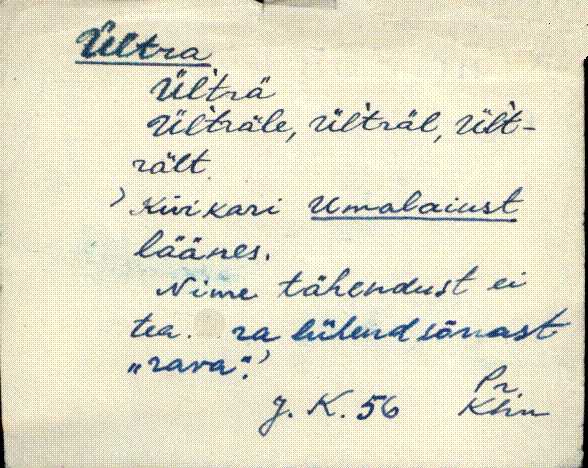 Ültra
Ülträ
Ülträle, Ülträl, Ült-
rält
Kivikari Umalaiust
läänes.
Nime tähendust ei
tea. ra lühend sõnast
„rava".
J. K. 56
Pr.
Khn